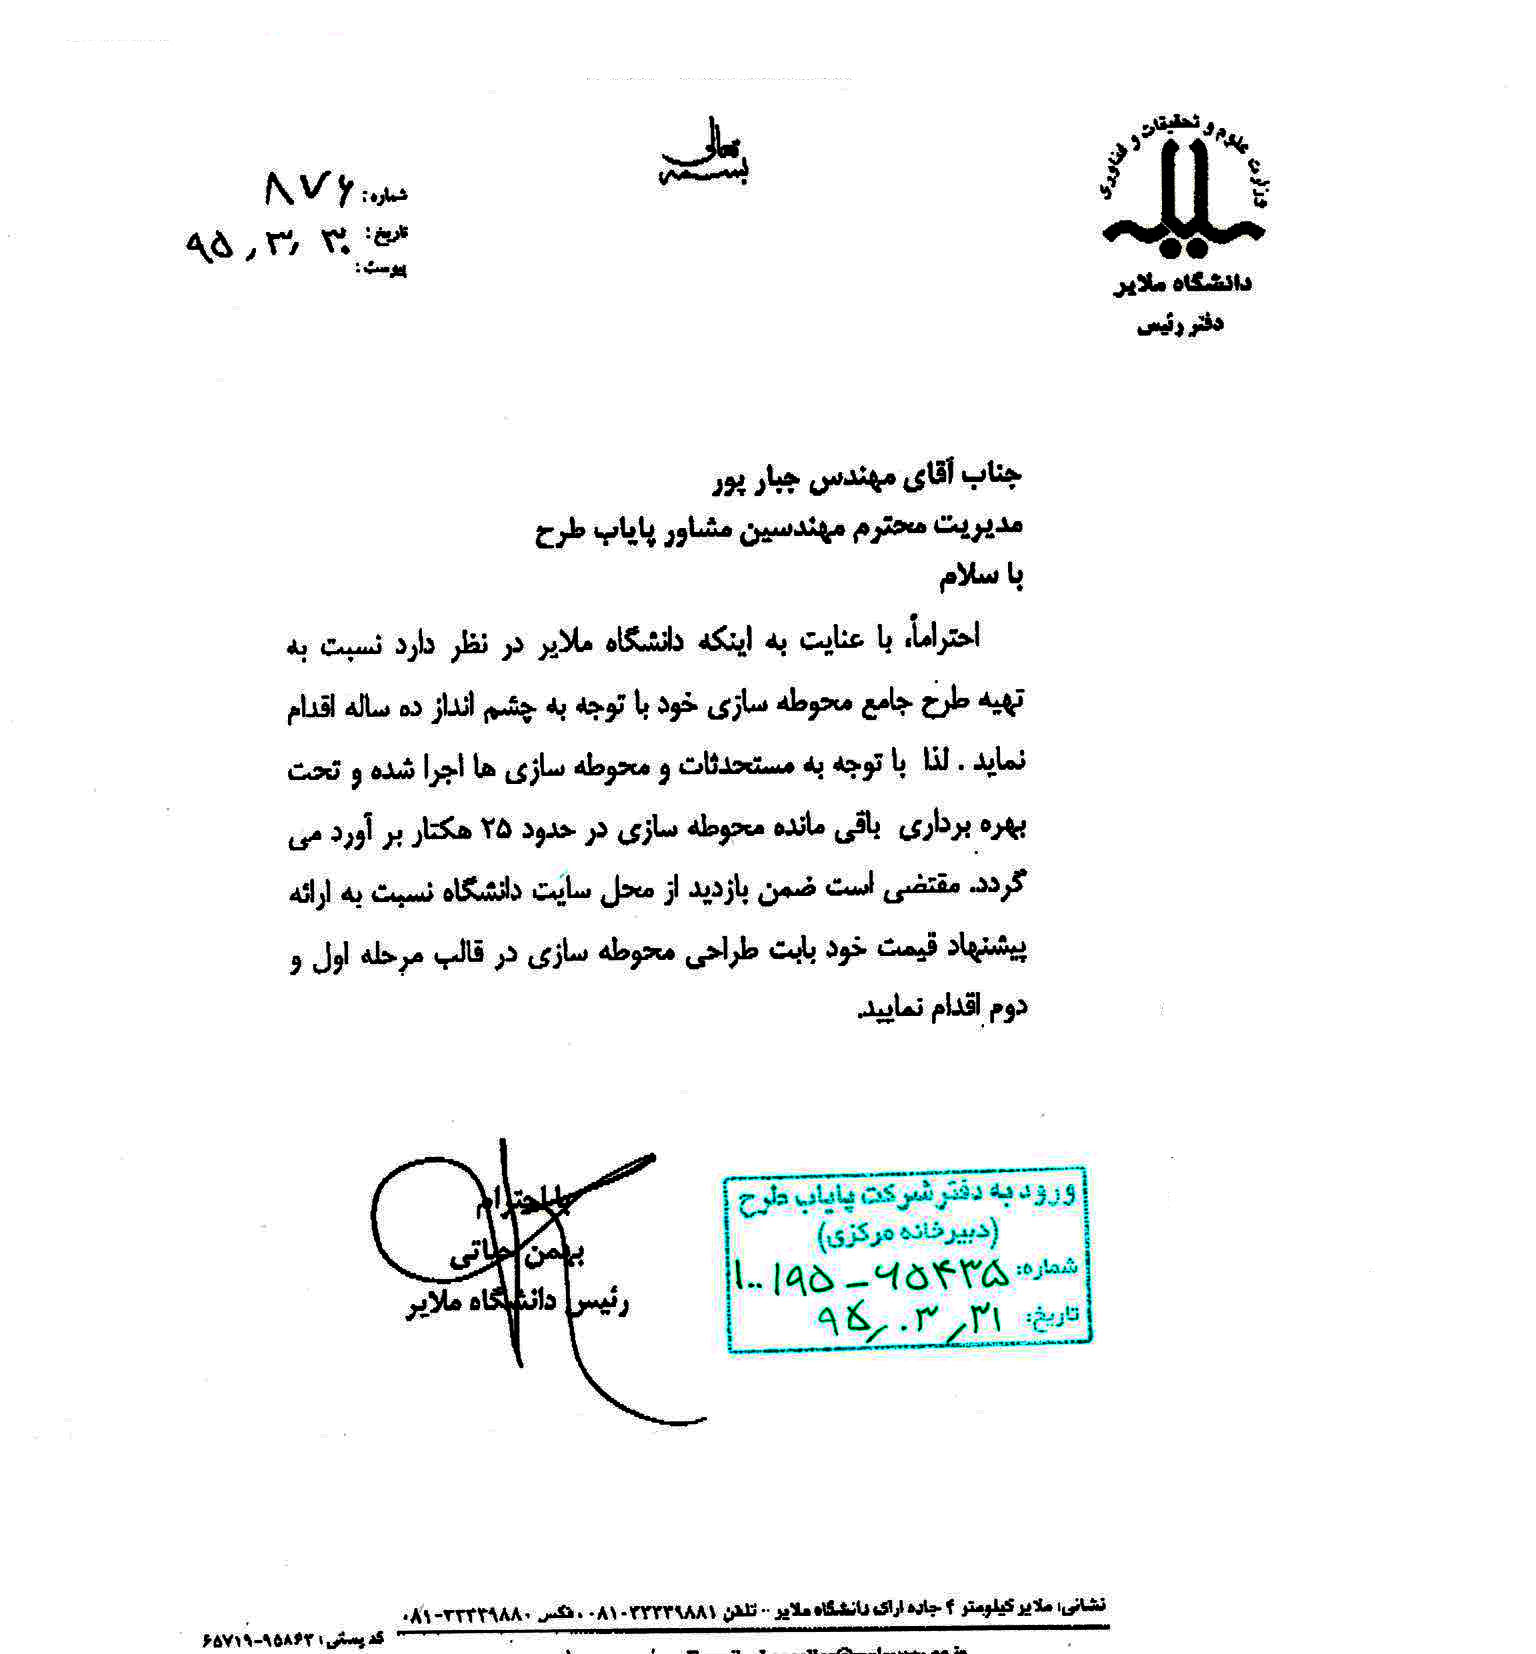 بسمه تعالی
وزارت علوم و تحقیقات و فناوری
دانشگاه ملایر
دفتر رئیس
شماره: ۸۷۶
تاریخ: ۹۵٫۳٫۳۰
پیوست:
جناب آقای مهندس جبار پور
مدیریت محترم مهندسین مشاور پایاب طرح
با سلام
احتراماً، با عنایت به اینکه دانشگاه ملایر در نظر دارد نسبت به
تهیه طرح جامع محوطه سازی خود با توجه به چشم انداز ده ساله اقدام
نماید . لذا با توجه به مستحدثات و محوطه سازی ها اجرا شده و تحت
بهره برداری باقی مانده محوطه سازی در حدود ۲۵ هکتار بر آورد می
گردد. مقتضی است ضمن بازدید از محل سایت دانشگاه نسبت به ارائه
پیشنهاد قیمت خود بابت طراحی محوطه سازی در قالب مرحله اول و
دوم اقدام نمایید.
با احترام
بهمن
رئیس دانشگاه ملایر
ورود به دفتر شرکت پایاب طرح
(دبیرخانه مرکزی)
شماره: ۱۰۰/۹۵-۶۵۴۳۵
تاریخ: ۹۵/۰۳/۳۱
نشانی: ملایر کیلومتر ۴ جاده اراک دانشگاه ملایر -- تلفن ۳۳۳۳۹۸۸۱-۰۸۱، فکس ۳۳۳۳۹۸۸۰-۰۸۱
کد پستی: ۹۵۸۶۳-۶۵۷۱۹